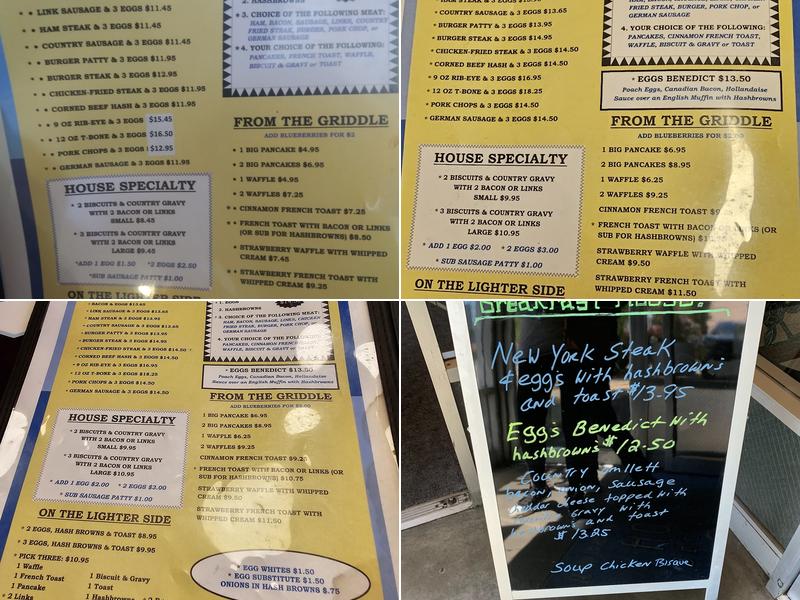 • LINK SAUSAGE & 3 EGGS $11.45
• HAM STEAK & 3 EGGS $11.45
• COUNTRY SAUSAGE & 3 EGGS $11.45
• BURGER PATTY & 3 EGGS $11.95
• BURGER STEAK & 3 EGGS $12.95
• CHICKEN-FRIED STEAK & 3 EGGS $11.95
• CORNED BEEF HASH & 3 EGGS $11.95
• 9 OZ RIB-EYE & 3 EGGS $15.45
• 12 OZ T-BONE & 3 EGGS $16.50
• PORK CHOPS & 3 EGGS $12.95
• GERMAN SAUSAGE & 3 EGGS $11.95
HOUSE SPECIALTY
* 2 BISCUITS & COUNTRY GRAVY
WITH 2 BACON OR LINKS
SMALL $8.45
* 3 BISCUITS & COUNTRY GRAVY
WITH 2 BACON OR LINKS
LARGE $9.45
*ADD 1 EGG $1.50 *2 EGGS $2.50
*SUB SAUSAGE PATTY $1.00
ON THE LIGHTER SIDE
2. HASHBROWNS
* 3. CHOICE OF THE FOLLOWING MEAT:
HAM, BACON, SAUSAGE, LINKS, COUNTRY
FRIED STEAK, BURGER, PORK CHOP, or
GERMAN SAUSAGE
*4. YOUR CHOICE OF THE FOLLOWING:
PANCAKES, FRENCH TOAST, WAFFLE,
BISCUIT & GRAVY or TOAST
FROM THE GRIDDLE
ADD BLUEBERRIES FOR $2
* 1 BIG PANCAKE $4.95
* 2 BIG PANCAKES $6.95
* 1 WAFFLE $4.95
* 2 WAFFLES $7.25
* CINNAMON FRENCH TOAST $7.25
* FRENCH TOAST WITH BACON OR LINKS
(OR SUB FOR HASHBROWNS) $8.50
* STRAWBERRY WAFFLE WITH WHIPPED
CREAM $7.45
* STRAWBERRY FRENCH TOAST WITH
WHIPPED CREAM $9.25
* COUNTRY SAUSAGE & 3 EGGS $13.65
* BURGER PATTY & 3 EGGS $13.95
* BURGER STEAK & 3 EGGS $14.95
* CHICKEN-FRIED STEAK & 3 EGGS $14.50
* CORNED BEEF HASH & 3 EGGS $14.50
* 9 OZ RIB-EYE & 3 EGGS $16.95
* 12 OZ T-BONE & 3 EGGS $18.25
* PORK CHOPS & 3 EGGS $14.50
* GERMAN SAUSAGE & 3 EGGS $14.50
HOUSE SPECIALTY
* 2 BISCUITS & COUNTRY GRAVY
WITH 2 BACON OR LINKS
SMALL $9.95
* 3 BISCUITS & COUNTRY GRAVY
WITH 2 BACON OR LINKS
LARGE $10.95
* ADD 1 EGG $2.00 * 2 EGGS $3.00
* SUB SAUSAGE PATTY $1.00
ON THE LIGHTER SIDE
FRIED STEAK, BURGER, PORK CHOP, or
GERMAN SAUSAGE
4. YOUR CHOICE OF THE FOLLOWING:
PANCAKES, CINNAMON FRENCH TOAST,
WAFFLE, BISCUIT & GRAVY or TOAST
* EGGS BENEDICT $13.50
Poach Eggs, Canadian Bacon, Hollandaise
Sauce over an English Muffin with Hashbrowns
FROM THE GRIDDLE
ADD BLUEBERRIES FOR $2.00
1 BIG PANCAKE $6.95
2 BIG PANCAKES $8.95
1 WAFFLE $6.25
2 WAFFLES $9.25
CINNAMON FRENCH TOAST
* FRENCH TOAST WITH BACON OR LINKS (OR
SUB FOR HASHBROWNS)
STRAWBERRY WAFFLE WITH WHIPPED
CREAM $9.50
STRAWBERRY FRENCH TOAST WITH
WHIPPED CREAM $11.50
* BACON & 3 EGGS $13.65
* LINK SAUSAGE & 3 EGGS $13.65
* HAM STEAK & 3 EGGS $13.95
* COUNTRY SAUSAGE & 3 EGGS $13.65
* BURGER PATTY & 3 EGGS $13.95
* BURGER STEAK & 3 EGGS $14.95
* CHICKEN-FRIED STEAK & 3 EGGS $14.50
* CORNED BEEF HASH & 3 EGGS $14.50
* 9 OZ RIB-EYE & 3 EGGS $16.95
* 12 OZ T-BONE & 3 EGGS $18.25
* PORK CHOPS & 3 EGGS $14.50
* GERMAN SAUSAGE & 3 EGGS $14.50
HOUSE SPECIALTY
* 2 BISCUITS & COUNTRY GRAVY
WITH 2 BACON OR LINKS
SMALL $9.95
* 3 BISCUITS & COUNTRY GRAVY
WITH 2 BACON OR LINKS
LARGE $10.95
* ADD 1 EGG $2.00 * 2 EGGS $3.00
* SUB SAUSAGE PATTY $1.00
ON THE LIGHTER SIDE
* 2 EGGS, HASH BROWNS & TOAST $8.95
* 3 EGGS, HASH BROWNS & TOAST $9.95
* PICK THREE: $10.95
1 Waffle
1 French Toast
1 Pancake
* 2 Links
1 Biscuit & Gravy
1 Toast
1 Hashbrowns
* 1. EGGS
2. HASHBROWNS
* 3. CHOICE OF THE FOLLOWING MEAT:
HAM, BACON, SAUSAGE, LINKS, CHICKEN
FRIED STEAK, BURGER, PORK CHOP, or
GERMAN SAUSAGE
4. YOUR CHOICE OF THE FOLLOWING:
PANCAKES, CINNAMON FRENCH TOAST,
WAFFLE, BISCUIT & GRAVY or TOAST
* EGGS BENEDICT $13.50
Poach Eggs, Canadian Bacon, Hollandaise
Sauce over an English Muffin with Hashbrowns
FROM THE GRIDDLE
ADD BLUEBERRIES FOR $2.00
1 BIG PANCAKE $6.95
2 BIG PANCAKES $8.95
1 WAFFLE $6.25
2 WAFFLES $9.25
CINNAMON FRENCH TOAST $9.25
* FRENCH TOAST WITH BACON OR LINKS (OR
SUB FOR HASHBROWNS) $10.75
STRAWBERRY WAFFLE WITH WHIPPED
CREAM $9.50
STRAWBERRY FRENCH TOAST WITH
WHIPPED CREAM $11.50
* EGG WHITES $1.50
* EGG SUBSTITUTE $1.50
ONIONS IN HASH BROWNS $.75
Breakfast
New York Steak
& eggs with hashbrowns
and toast $13.95
Eggs Benedict with
hashbrowns $12.50
Country
bacon, onion, Sausage
cheddar cheese topped with
Gravy with
hashbrowns and toast
$13.25
Soup Chicken Bisque